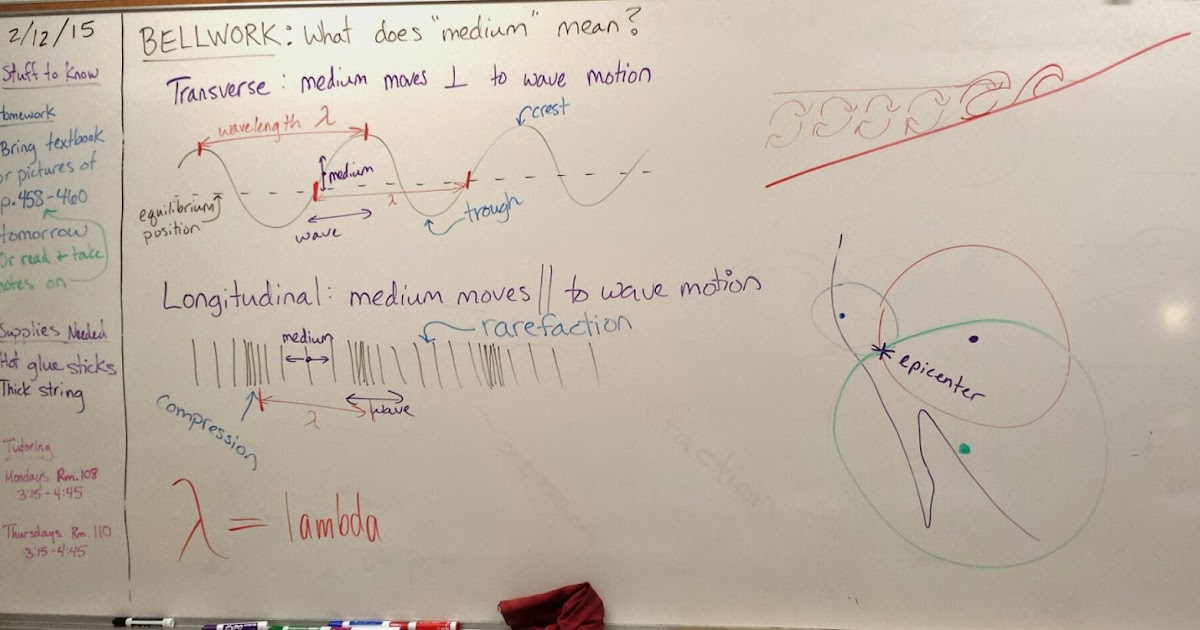 2/12/15
Stuff to Know
Homework
Bring textbook
or pictures of
p. 458-460
tomorrow
Or read + take
notes on
Supplies Needed
Hot glue sticks
Thick string
Tutoring
Mondays Rm. 108
3:15-4:45
Thursdays Rm. 110
3:15-4:45
BELLWORK: What does "medium" mean?
Transverse: medium moves ⊥ to wave motion
wavelength λ
crest
medium
λ
equilibrium
position
wave
trough
Longitudinal: medium moves || to wave motion
medium
rarefaction
compression
λ
wave
λ = lambda
epicenter